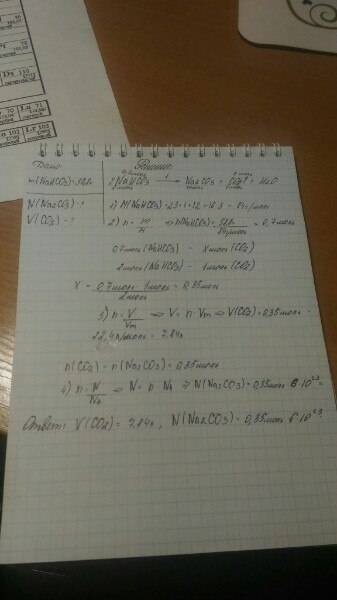 Дано:
Решение
m(NaHCO3) = 58,8г
N(Na2CO3) - ?
V(CO2) - ?
2NaHCO3 → Na2CO3 + CO2↑ + H2O
1) M(NaHCO3) = 23+1+12+16·3 = 84г/моль
2) n = m/M ⇒ n(NaHCO3) = = 0,7моль
0,7моль(NaHCO3) - Xмоль(CO2)
2моль(NaHCO3) - 1моль(CO2)
X = 0,7моль · 1моль / 2моль = 0,35моль
3) n = V/Vm ⇒ V = n·Vm ⇒ V(CO2) = 0,35моль·
22,4л/моль = 7,84л
n(CO2) = n(Na2CO3) = 0,35моль
4) n = N/NA ⇒ N = n·NA ⇒ N(Na2CO3) = 0,35моль·6·10²³
Ответ: V(CO2) = 7,84л, N(Na2CO3) = 0,35моль·6·10²³
Lu 71
Lr 103